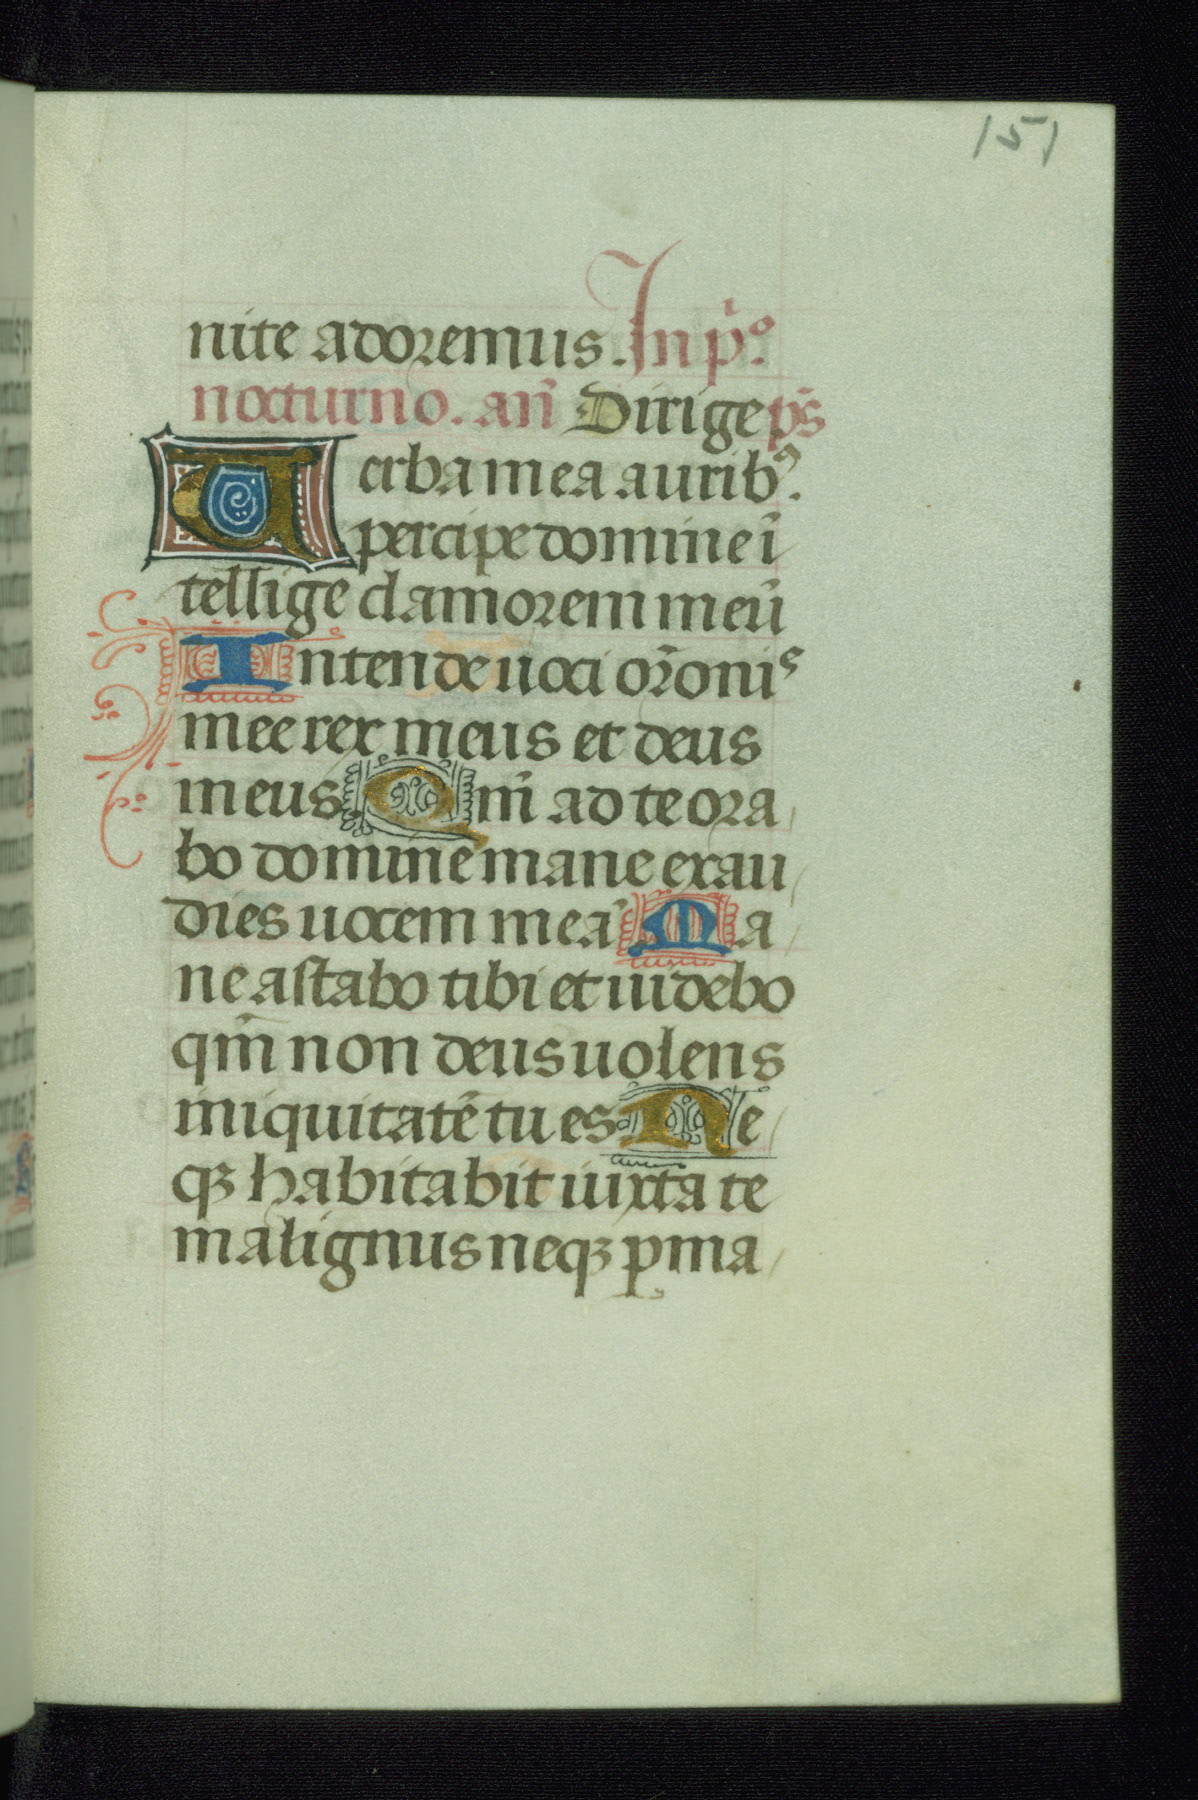 151
nite adoremus. In p̄o.
nocturno. an̄ Dirige ps̄
Verba mea aurib⁹.
percipe domine ī
tellige clamorem meū
Intende uoci or̄onis
mee rex meus et deus
meus. Qm̄ ad te ora
bo domine mane exau
dies uocem meā Ma
ne astabo tibi et uidebo
qm̄ non deus uolens
iniquitatē tu es. Ne
qꝫ habitabit iuxta te
malignus neqꝫ ꝑma